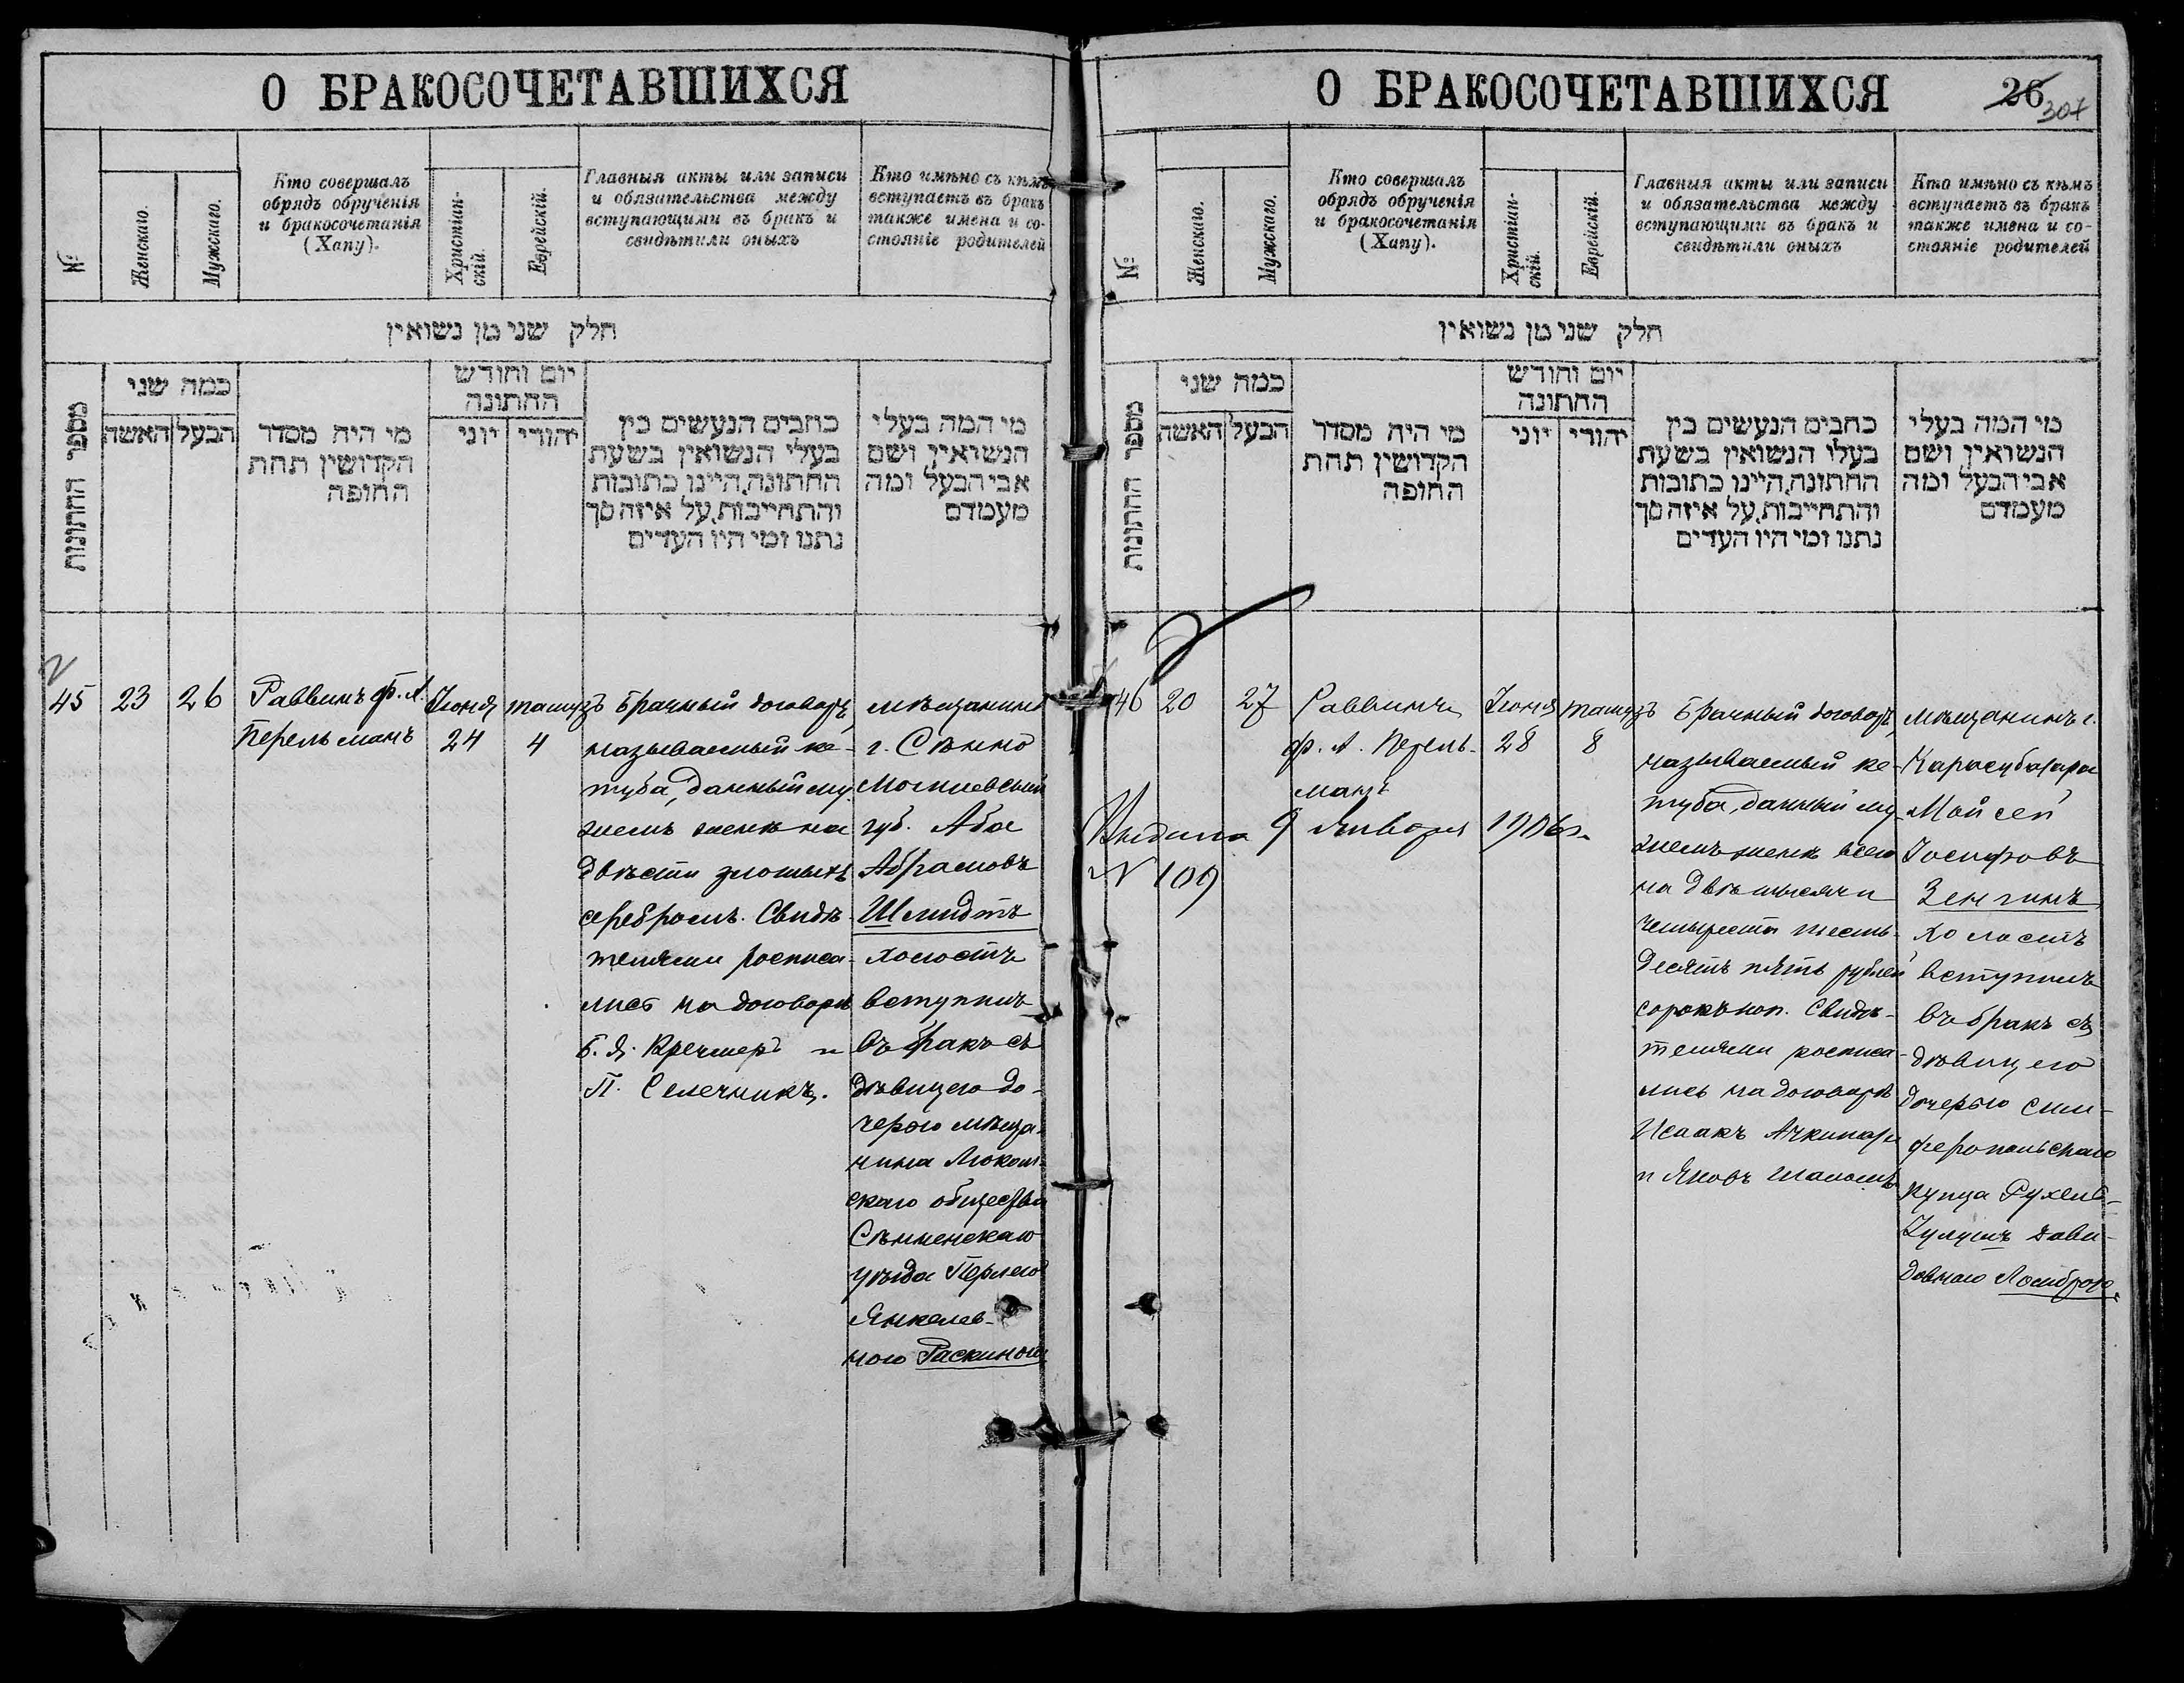 О БРАКОСОЧЕТАВШИХСЯ
№
Женскаго.
Мужскаго.
Кто совершалъ
обрядъ обрученія
и бракосочетанія
(Хапу).
Христіан-
скій.
Еврейскій.
Главныя акты или записи
и обязательства между
вступающими въ бракъ и
свидѣтили оныхъ
Кто имѣно съ кѣмъ
вступаетъ въ бракъ
также имена и со-
стояніе родителей
חלק שני מן נשואין
מספר החתונות
כמה שני
האשה
הבעל
מי היה מסדר
הקדושין תחת
החופה
יום וחודש
החתונה
יוני
יהודי
כתבים הנעשים בין
בעלי הנשואין בשעת
החתונה, היינו כתובות
והתחייבות, על איזה סך
נתנו ומי היו העדים
מי המה בעלי
הנשואין ושם
אבי הבעל ומה
מעמדם
45
23
26
Раввинъ Ф. А.
Перельманъ
Іюня
24
тамузъ
4
Брачный договоръ,
называемый ке-
туба, данный му-
жемъ женѣ на
двѣсти злотыхъ
серебромъ. Свидѣ-
телями росписа-
лись на договорѣ
Б. Я. Кречмеръ и
П. Селечникъ.
мѣщанинъ
г. Сѣнно
Могилевской
губ. Аба
Абрамовъ
Шмидтъ
холостъ
вступилъ
въ бракъ съ
дѣвицею до-
черью мѣща-
нина
скаго общества
Сѣнненскаго
уѣзда Перлею
Янкелев-
ною Раскиною
О БРАКОСОЧЕТАВШИХСЯ
26
307
№
Женскаго.
Мужскаго.
Кто совершалъ
обрядъ обрученія
и бракосочетанія
(Хапу).
Христіан-
скій.
Еврейскій.
Главныя акты или записи
и обязательства между
вступающими въ бракъ и
свидѣтили оныхъ
Кто имѣно съ кѣмъ
вступаетъ въ бракъ
также имена и со-
стояніе родителей
חלק שני מן נשואין
מספר החתונות
כמה שני
האשה
הבעל
מי היה מסדר
הקדושין תחת
החופה
יום וחודש
החתונה
יוני
יהודי
כתבים הנעשים בין
בעלי הנשואין בשעת
החתונה, היינו כתובות
והתחייבות, על איזה סך
נתנו ומי היו העדים
מי המה בעלי
הנשואין ושם
אבי הבעל ומה
מעמדם
46
20
27
Раввинъ
Ф. А. Перель-
манъ
Іюня
28
тамузъ
8
Выдана 9 Января 1906 г.
№ 109
Брачный договоръ,
называемый ке-
туба, данный му-
жемъ женѣ всего
на двѣ тысячи
четыреста шесть-
десятъ пять рублей
сорокъ коп. Свидѣ-
телями росписа-
лись на договорѣ
Исаакъ Ачкинази
и Яковъ Шаломъ
мѣщанинъ г.
Карасубазара
Мойсей
Іосифовъ
Зенгинъ
холостъ
вступилъ
въ бракъ съ
дѣвицею
дочерью сим-
феропольскаго
купца Рухелъ-
Гулушъ Дави-
довною Ломброзо.